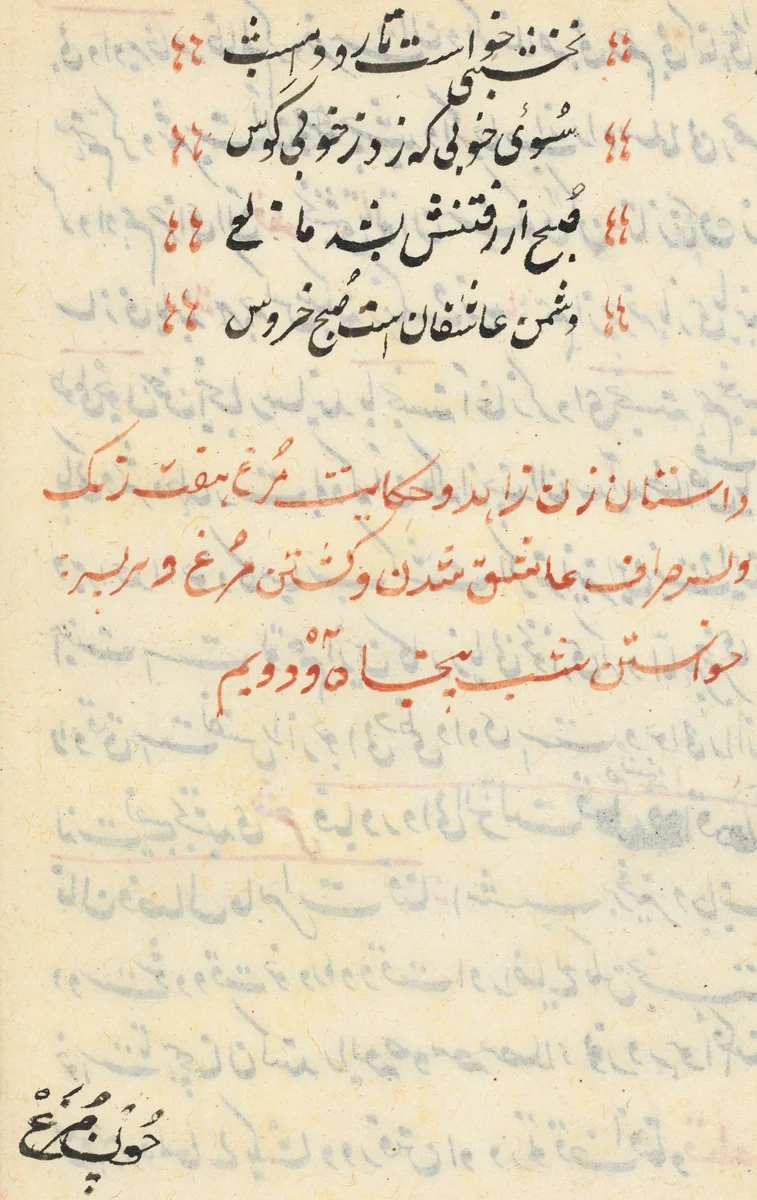 نخشبی خواست تا رود امشب
سُوئ خوبی که زد ز خوبی کوس
صُبح از رفتنش بشد مانع
دشمن عاشقان است صُبح خروس
داستان زن زاهد و حکایت مُرغ هفت رنک
و پسر صراف عاشق شدن و کشتن مُرغ و سر پسر
خواستن شب پنجاه و دویم
چُون مُرغ